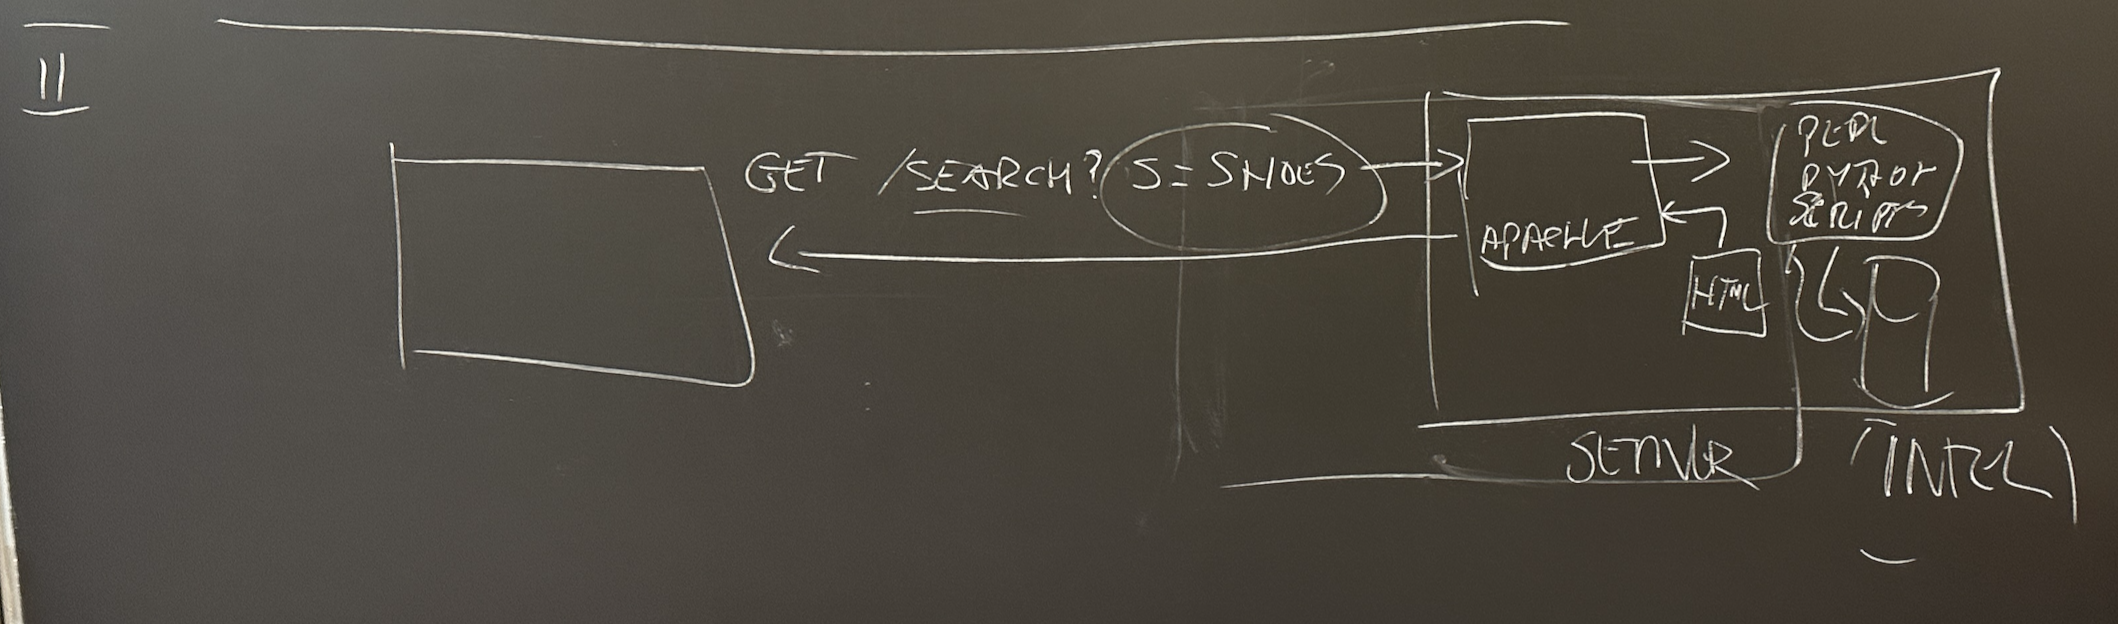 II
GET /SEARCH? S=SHOES
APACHE
PERL
PYTHON
SCRIPTS
HTML
SERVER
(INTEL)